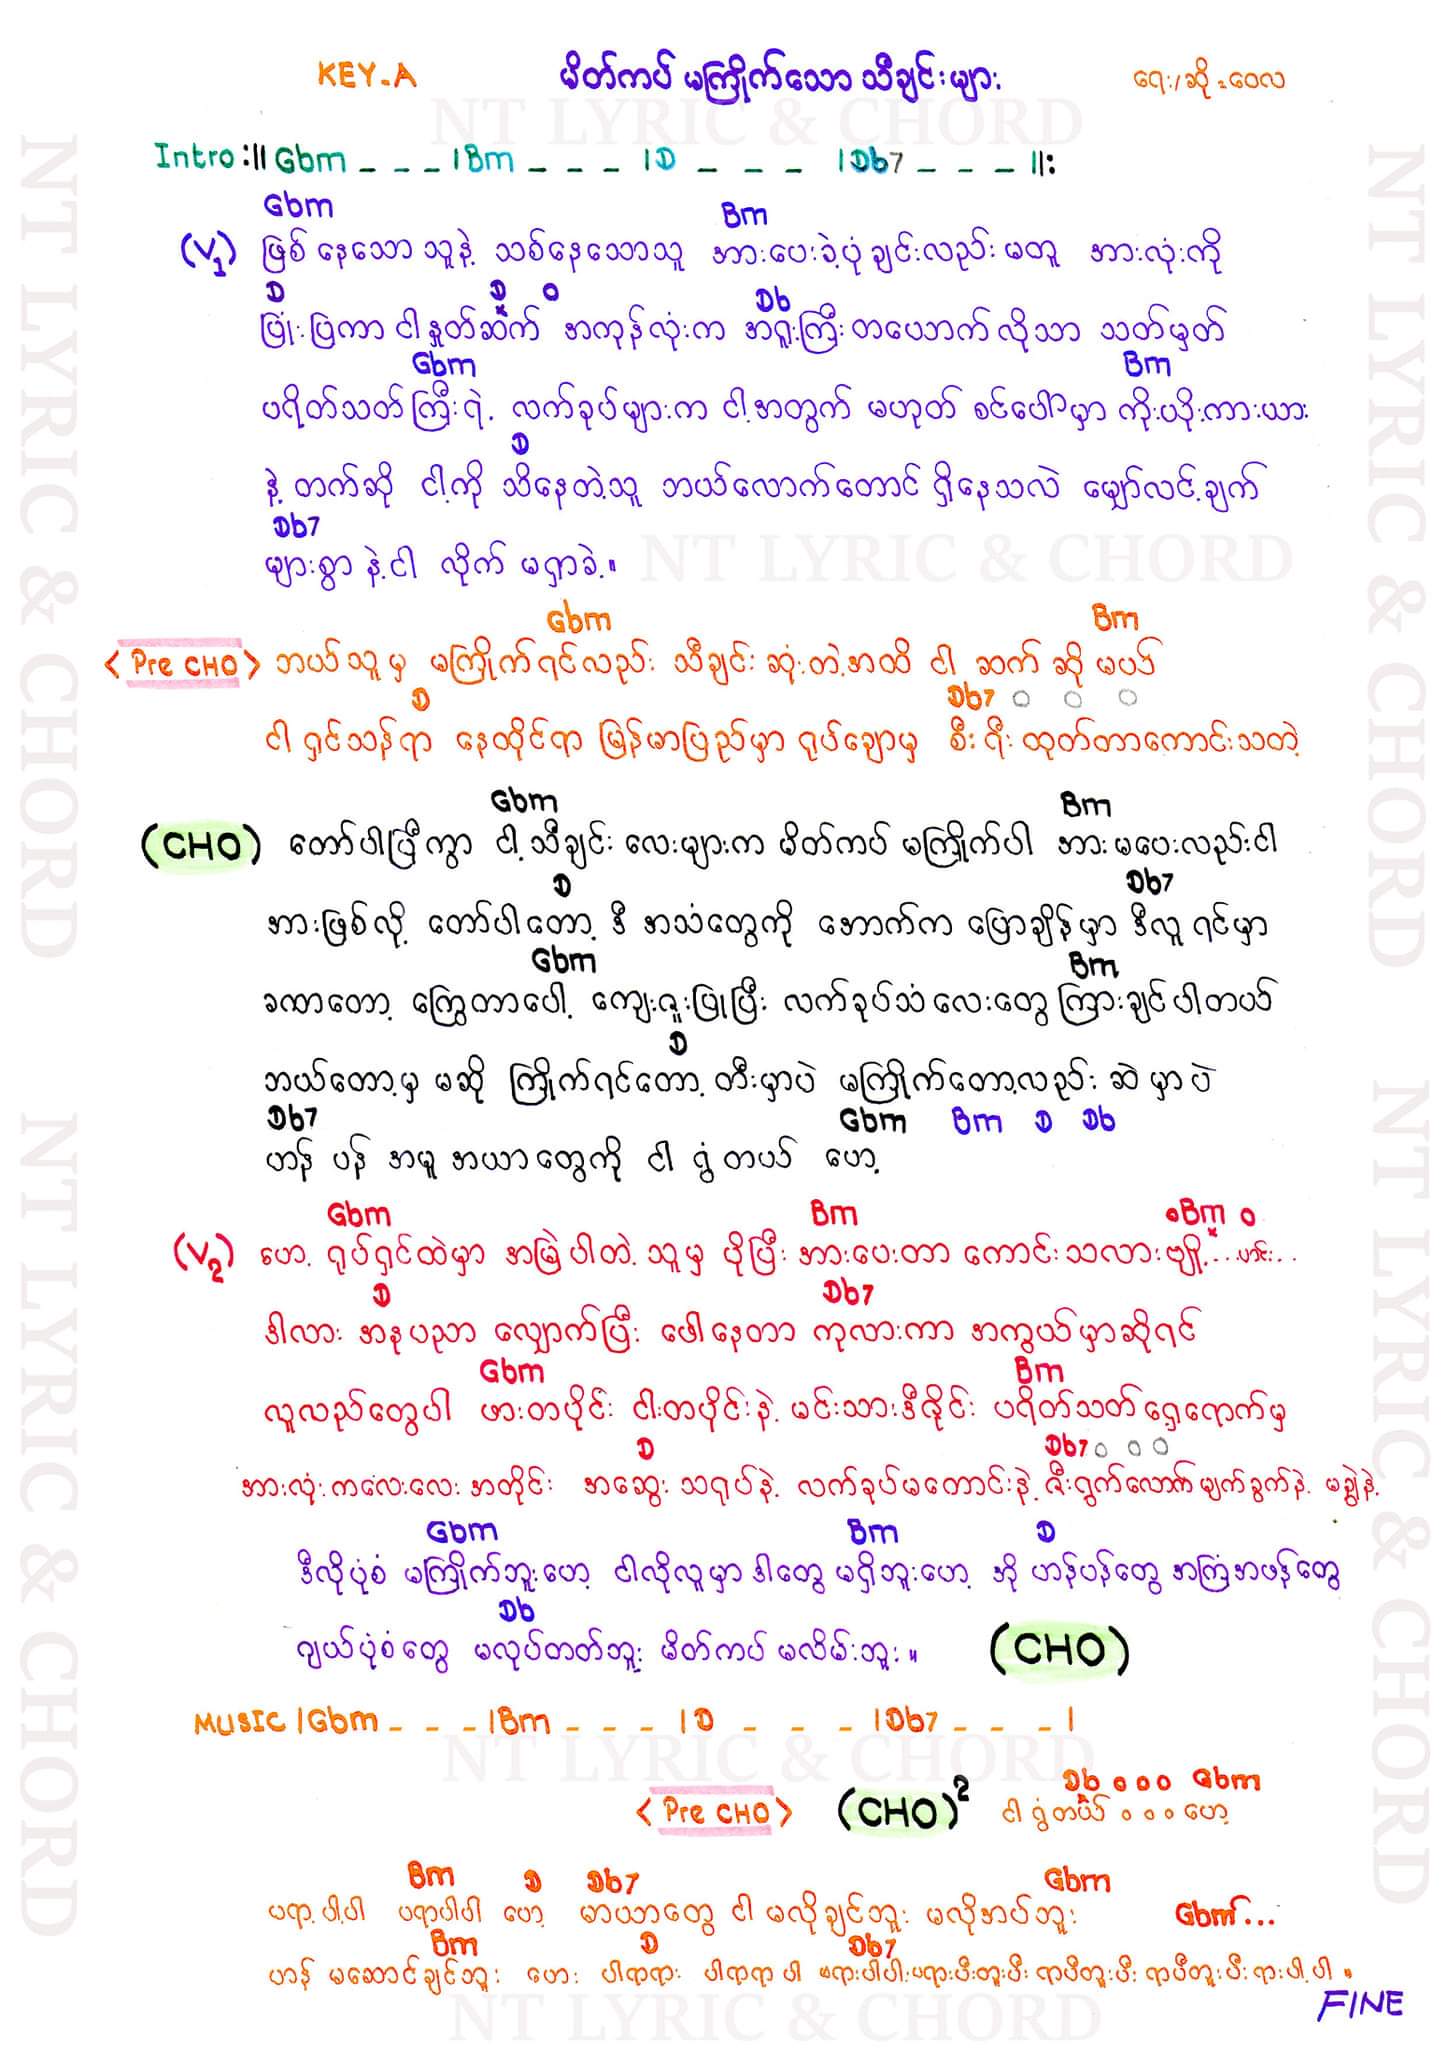 KEY-A မိတ်ကပ် မကြိုက်သော သီချင်းများ ရေး/ဆို = ဝေလ
NT LYRIC & CHORD
Intro :|| Gbm _ _ _ | Bm _ _ _ | D _ _ _ | Db7 _ _ _ ||:
Gbm Bm
(V1) ဖြစ် နေသော သူနဲ့ သစ်နေသောသူ အားပေးခဲ့ပုံ ချင်းလည်း မတူ အားလုံးကို
D D o Db
ပြုံးပြကာ ငါ နှုတ်ဆက် အကုန်လုံးက အရူးကြီး တယောက် လိုသာ သတ်မှတ်
Gbm Bm
ပရိတ်သတ်ကြီးရဲ့ လက်ခုပ်များက ငါ့အတွက် မဟုတ် စင်ပေါ်မှာ ကိုးယိုးကားယား
D
နဲ့ တက်ဆို ငါ့ကို သိနေတဲ့သူ ဘယ်လောက်တောင် ရှိနေသလဲ မျှော်လင့်ချက်
Db7
များစွာ နဲ့ ငါ လိုက် မရှာခဲ့။
NT LYRIC & CHORD
Gbm Bm
< Pre CHO > ဘယ်သူမှ မကြိုက်ရင်လည်း သီချင်း ဆုံးတဲ့အထိ ငါ ဆက် ဆို မယ်
D Db7 o o o
ငါ ရှင်သန်ရာ နေထိုင်ရာ မြန်မာပြည်မှာ ရုပ်ချောမှ စီးရီး ထုတ်တာကောင်းသတဲ့
Gbm Bm
(CHO) တော်ပါပြီကွာ ငါ့ သီချင်း လေးများက မိတ်ကပ် မကြိုက်ပါ အားမပေးလည်းငါ
D Db7
အားဖြစ်လို့ တော်ပါတော့ ဒီ အသံတွေကို အောက်က ပြောချိန်မှာ ဒီလူ ရင်မှာ
Gbm Bm
ခဏတော့ ကြွေတာပေါ့ ကျေးဇူးပြုပြီး လက်ခုပ်သံ လေးတွေ ကြားချင်ပါတယ်
D
ဘယ်တော့မှ မဆို ကြိုက်ရင်တော့ တီးမှာပဲ မကြိုက်တော့လည်း ဆဲ မှာ ပဲ
Db7 Gbm Bm D Db
ဟန် ပန် အမူ အယာတွေကို ငါ ရွံ တယ် ဟေ့
Gbm Bm oBm o
(V2) ဟေ့ ရုပ်ရှင်ထဲမှာ အမြဲပါတဲ့ သူမှ ပိုပြီး အားပေးတာ ကောင်းသလားဗျို့...ဟင်း..
D Db7
ဒါလား အနုပညာ လျှောက်ပြီး ဖေါ်နေတာ ကုလားကာ အကွယ်မှာဆိုရင်
Gbm Bm
လူလည်တွေပါ ဖားတပိုင်း ငါးတပိုင်းနဲ့ မင်းသားဒီဇိုင်း ပရိတ်သတ်ရှေ့ရောက်မှ
D Db7 o o o
အားလုံးကလေးလေး အတိုင်း အဆွေး သရုပ်နဲ့ လက်ခုပ်မကောင်းနဲ့ ဇီးရွက်လောက်မျက်ခွက်နဲ့ မနွဲ့နဲ့
Gbm Bm D
ဒီလိုပုံစံ မကြိုက်ဘူးဟေ့ ငါလိုလူမှာ ဒါတွေ မရှိဘူးဟေ့ အို ဟန်ပန်တွေ အကြံအဖန်တွေ
Db
ဂျယ်ပုံစံတွေ မလုပ်တတ်ဘူး မိတ်ကပ် မလိမ်းဘူး။ (CHO)
MUSIC | Gbm _ _ _ | Bm _ _ _ | D _ _ _ | Db7 _ _ _ |
NT LYRIC & CHORD
Db o o o Gbm
< Pre CHO > (CHO)2 ငါ ရွံတယ် o o o ဟေ့
Bm D Db7 Gbm
ပရာ့ပါ့ပါ ပရာပါပါ ဟေ့ မာယာတွေ ငါ မလိုချင်ဘူး မလိုအပ်ဘူး Gbm...
Bm D Db7
ဟန် မဆောင်ချင်ဘူး ဟေး ပါရာရား ပါရာရာ ပါ
FINE
NT LYRIC & CHORD
NT LYRIC & CHORD
NT LYRIC & CHORD
NT LYRIC & CHORD
NT LYRIC & CHORD